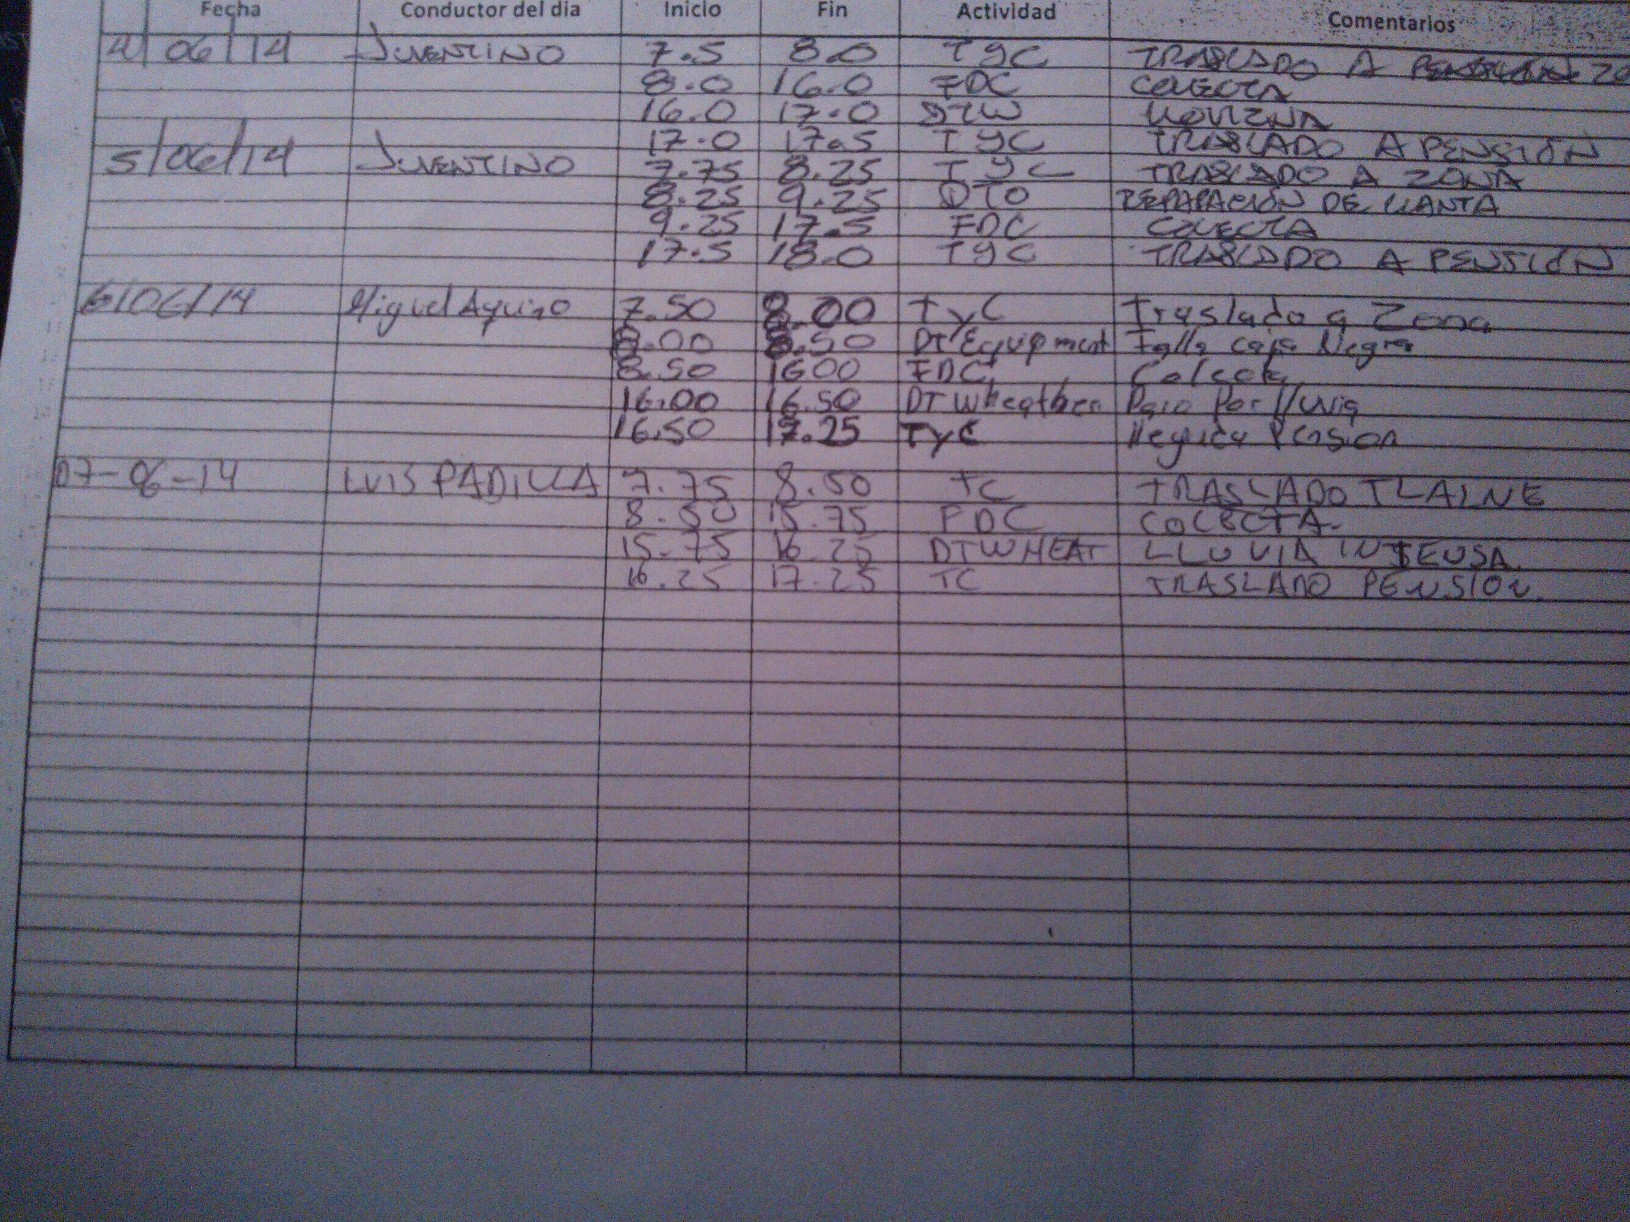 Fecha Conductor del día Inicio Fin Actividad Comentarios
4/06/14 JUVENTINO 7.5 8.0 TyC TRASLADO A
8.0 16.0 FDC COLECTA
16.0 17.0 DTW LLOVIZNA
17.0 17.5 TyC TRASLADO A PENSIÓN
5/06/14 JUVENTINO 7.75 8.25 TyC TRASLADO A ZONA
8.25 9.25 DTO REPARACIÓN DE LLANTA
9.25 17.5 FDC COLECTA
17.5 18.0 TyC TRASLADO A PENSIÓN
6/06/14 Miguel Aquino 7.50 8.00 TyC Traslado a Zona
8.00 8.50 DT Equipment Falla caja Negra
8.50 16.00 FDC Colecta
16.00 16.50 DT Wheather Paro Por lluvia
16.50 17.25 TyC Pension
07-06-14 LUIS PADILLA 7.75 8.50 TC TRASLADO TLALNE
8.50 15.75 FDC COLECTA.
15.75 16.25 DTWHEAT LLUVIA INTEUSA.
16.25 17.25 TC TRASLADO PENSIÓN.